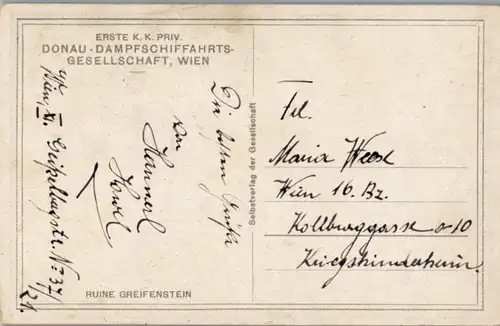 ERSTE K. K. PRIV.
DONAU-DAMPFSCHIFFAHRTS-
GESELLSCHAFT, WIEN
Die besten Grüße
von
Hammerl
Wien, XII.
Selbstverlag der Gesellschaft
Frl.
Maria Weese
Wien 16. Bz.
Kollburggasse 8-10
Kriegskinderheim.
RUINE GREIFENSTEIN